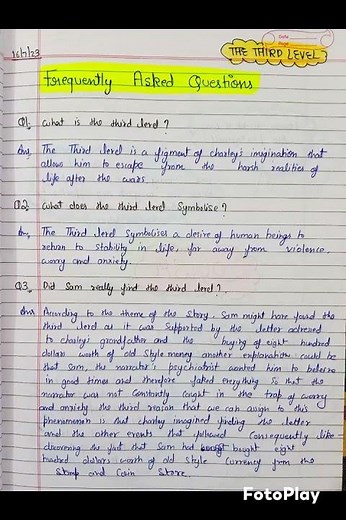 16/7/23
Date
Page
THE THIRD LEVEL
Frequently Asked Questions
Q1. What is the third level ?
Ans, The Third level is a figment of charley's imigination that
allows him to escape from the harsh realities of
life after the wars.
Q.2 What does the third level Symbolise ?
Ans, The Third level Symbolises a desire of human beings to
return to stability in life, far away from violence,
worry and anxiety.
Q.3. Did Sam really find the third level ?
Ans According to the theme of the Story, Sam might have found the
third level as it was Supported by the letter adressed
to charley's grandfather and the buying of eight hundred
dollars worth of old Style money another explanation could be
that Sam, the narrator's psychiatrist wanted him to believe
in good times and therefore faked everything So that the
narrator was not Constantly caught in the trap of worry
and anxiety the third reason that we can assign to this
phenomenon is that charley imagined finding the letter
and the other events that followed Consequently like
discovering the fact that Sam had bought eight
hundred dollars worth of old Style currency from the
Stamp and Coin Store.
FotoPlay